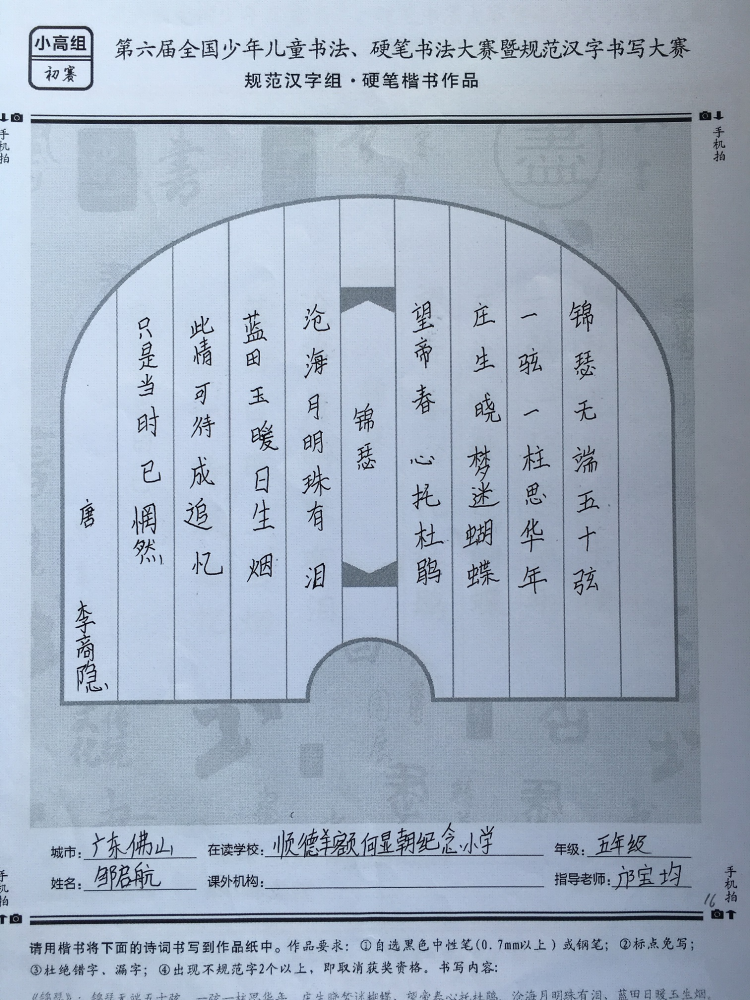 小高组
初赛
第六届全国少年儿童书法、硬笔书法大赛暨规范汉字书写大赛
规范汉字组·硬笔楷书作品
手机拍
手机拍
锦瑟无端五十弦
一弦一柱思华年
庄生晓梦迷蝴蝶
望帝春心托杜鹃
锦瑟
沧海月明珠有泪
蓝田玉暖日生烟
此情可待成追忆
只是当时已惘然
唐 李商隐
城市：广东佛山 在读学校：顺德羊额何显朝纪念小学 年级：五年级
姓名：邹启航 课外机构： 指导老师：邝宝均
16
手机拍
手机拍
请用楷书将下面的诗词书写到作品纸中。作品要求：①自选黑色中性笔(0.7mm以上)或钢笔；②标点免写；
③杜绝错字、漏字；④出现不规范字2个以上，即取消获奖资格。书写内容：
《锦瑟》：锦瑟无端五十弦，一弦一柱思华年。庄生晓梦迷蝴蝶，望帝春心托杜鹃。沧海月明珠有泪，蓝田日暖玉生烟。